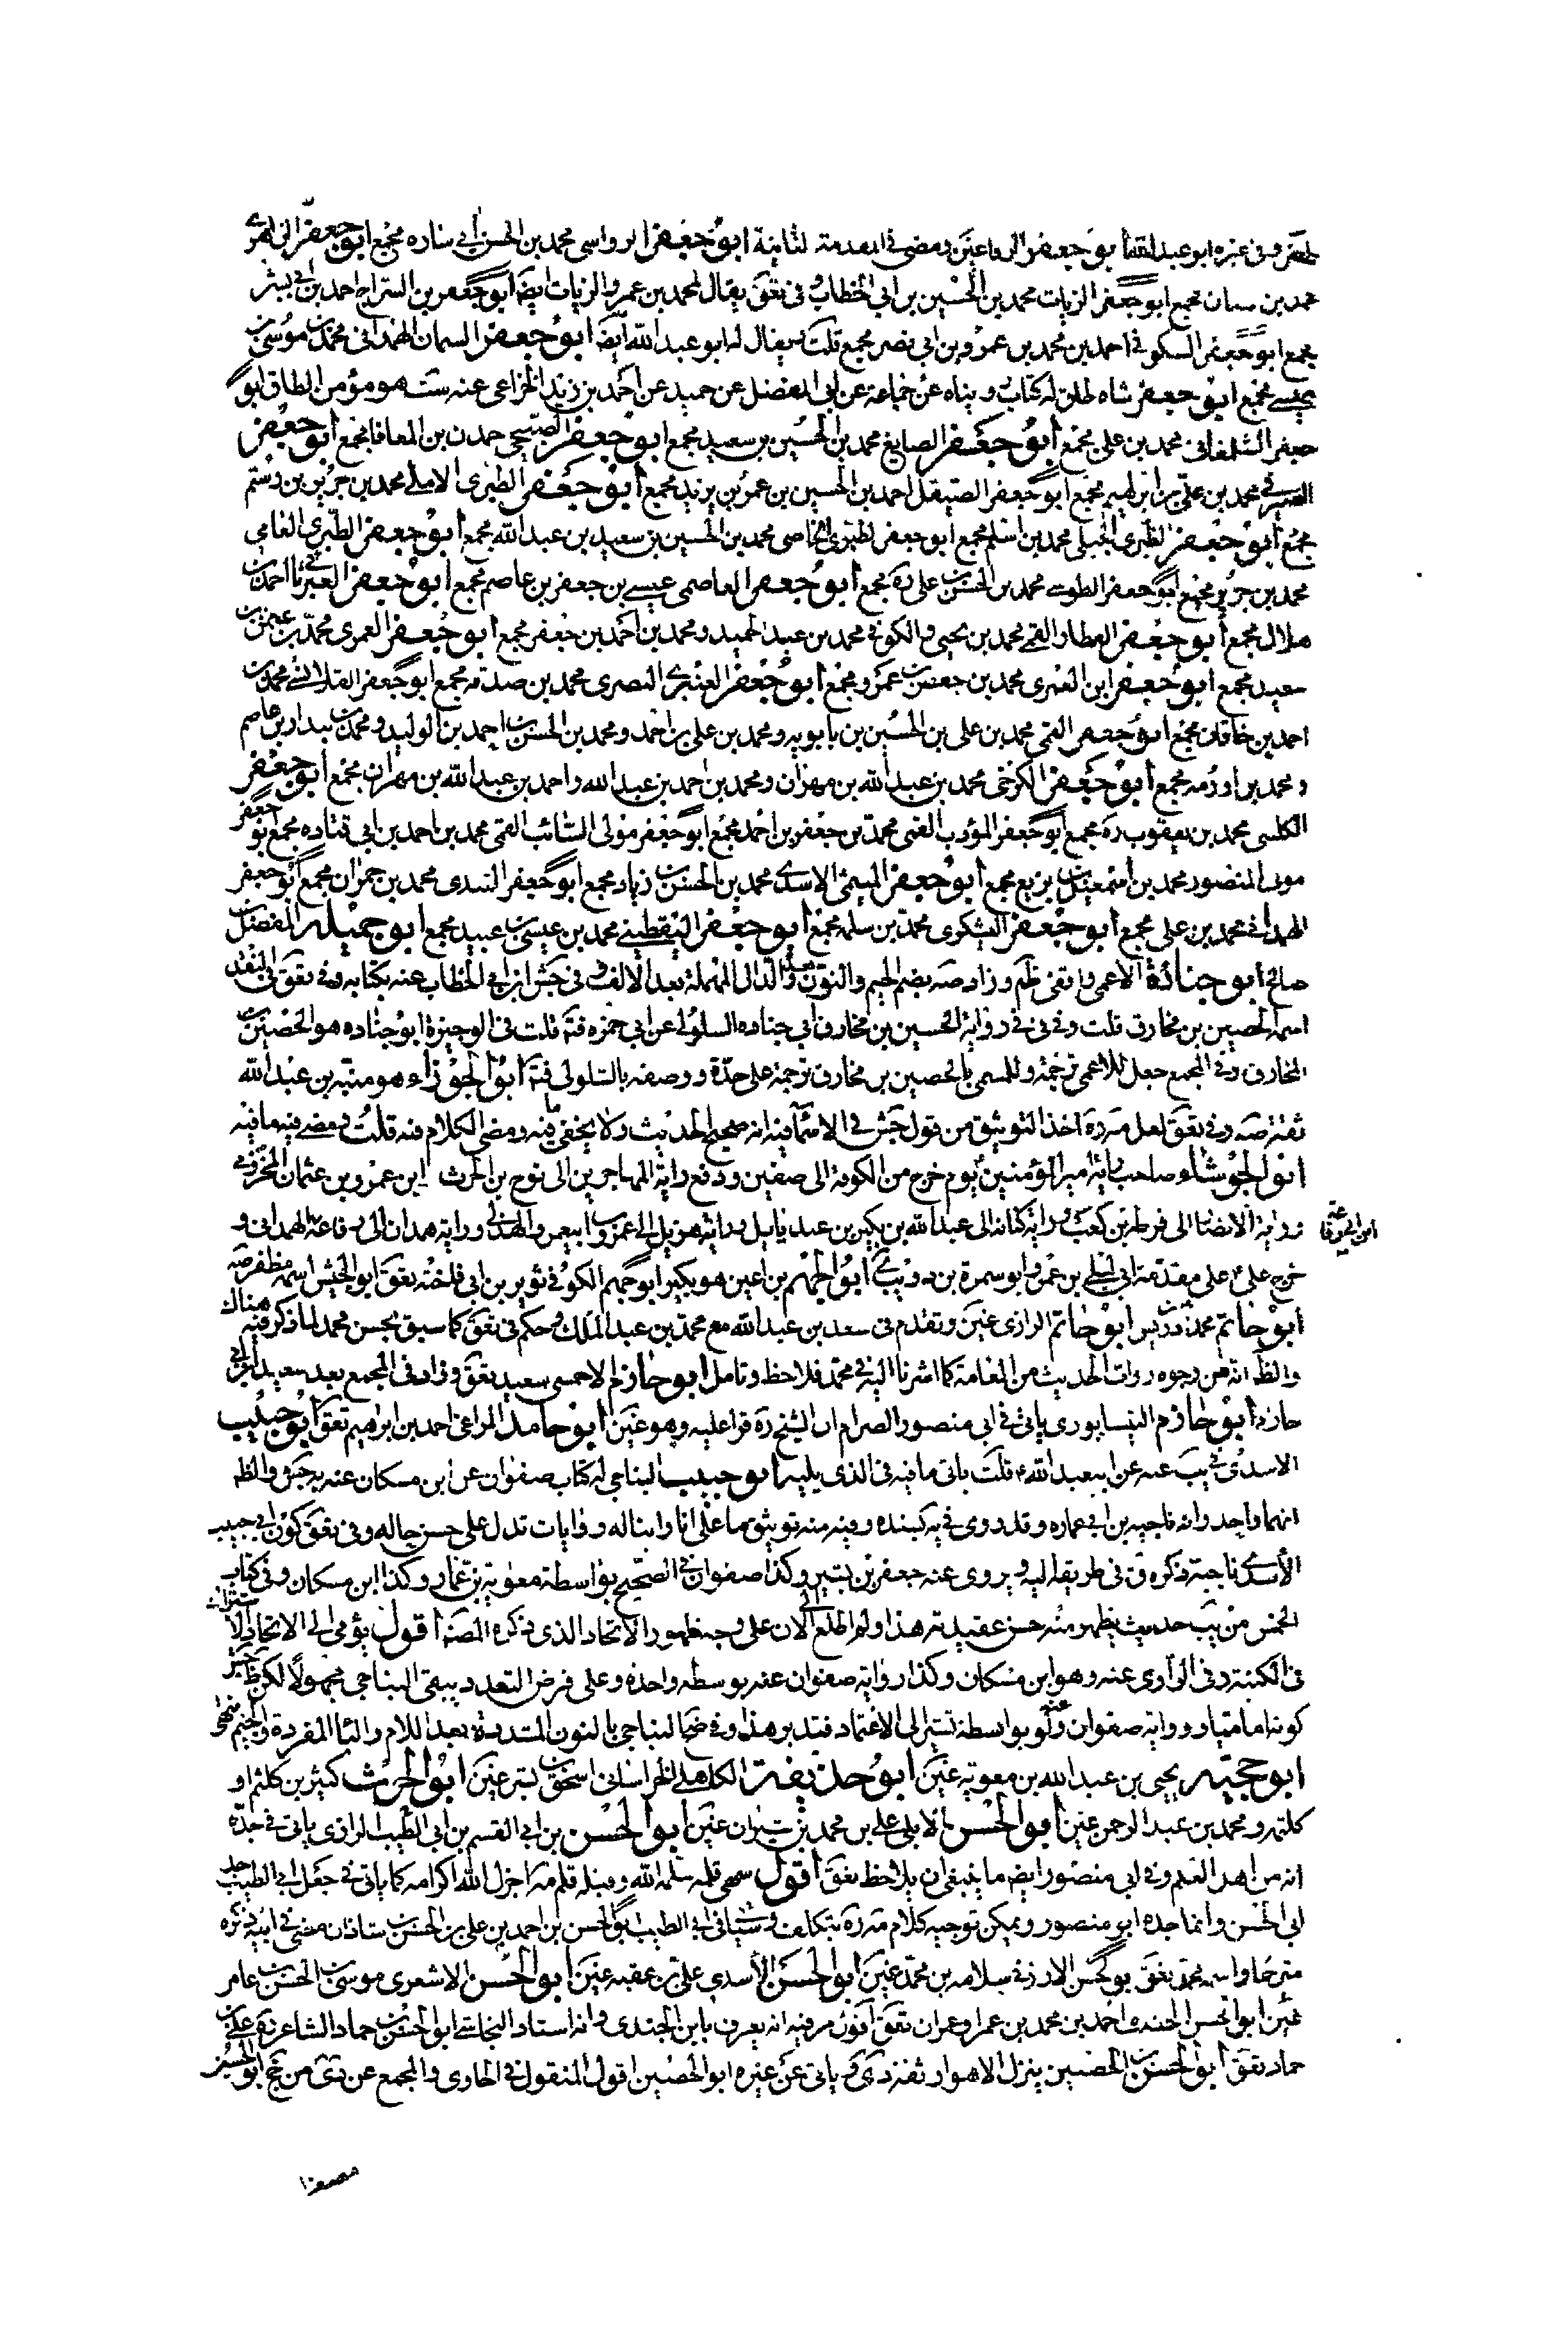 ابو عبد الله ابو جعفر ومضى في المقدمة الثانية ابو جعفر الرواسى محمد بن الحسن أبي ساره مجمع ابو جعفر الزاهرى
محمد بن سنان مجمع ابو جعفر الزيات محمد بن الحسين بن ابي الخطاب وفى تعق يقال لمحمد بن عمرو الزيات ايضا ابو جعفر بن السراج احمد بن ابي بشر
مجمع ابو جعفر السكونى احمد بن محمد بن عمرو بن ابي نصر مجمع قلت ويقال له ابو عبد الله ايضا ابو جعفر السمان الهمدانى محمد بن موسى بن
عيسى مجمع ابو جعفر شاه طاق له كتاب رويناه عن جماعة عن ابى المفضل عن حميد عن احمد بن زيد الخزاعى عنه ست هو مؤمن الطاق ابو
جعفر الشلمغانى محمد بن على مجمع ابو جعفر الصايغ محمد بن الحسين بن سعيد مجمع ابو جعفر الصبيحى حمدن بن المعافا مجمع ابو جعفر
الصيرفى محمد بن على بن ابرهيم مجمع ابو جعفر الصيقل احمد بن الحسين بن عمر بن يزيد مجمع ابو جعفر الطبرى الاملى محمد بن جرير بن رستم
مجمع ابو جعفر الطبرى الجبلى محمد بن اسلم مجمع ابو جعفر الطبرى الخاصى محمد بن الحسين بن سعيد بن عبد الله مجمع ابو جعفر الطبرى العامى
محمد بن جرير مجمع ابو جعفر الطوسى محمد بن الحسن بن على ره مجمع ابو جعفر العاصمى عيسى بن جعفر بن عاصم مجمع ابو جعفر العبرتائى احمد بن
هلال مجمع ابو جعفر العطار القمى محمد بن يحيى والكوفى محمد بن عبد الحميد ومحمد بن احمد بن جعفر مجمع ابو جعفر العمرى محمد بن عثمن بن
سعيد مجمع ابو جعفر ابن العنبرى محمد بن جعفر بن عمرو مجمع ابو جعفر العنبرى البصرى محمد بن صدقه مجمع ابو جعفر القلانسى محمد بن
احمد بن خاقان مجمع ابو جعفر القمى محمد بن على بن الحسين بن بابويه ومحمد بن على بن احمد ومحمد بن الحسن بن احمد بن الوليد ومحمد بن بندار بن عاصم
ومحمد بن اورمه مجمع ابو جعفر الكرخى محمد بن عبد الله بن مهران ومحمد بن احمد بن عبد الله واحمد بن عبد الله بن مهران مجمع ابو جعفر
الكلينى محمد بن يعقوب ره مجمع ابو جعفر المؤدب القمى محمد بن جعفر بن احمد مجمع ابو جعفر مولى السائب القمى محمد بن احمد بن ابي قتاده مجمع ابو جعفر
مولى المنصور محمد بن اسمعيل بن بزيع مجمع ابو جعفر الميثمى الاسدى محمد بن الحسن بن زياد مجمع ابو جعفر النهدى محمد بن حمران مجمع ابو جعفر
الهمدانى محمد بن على مجمع ابو جعفر اليشكرى محمد بن سلمه مجمع ابو جعفر اليقطينى محمد بن عيسى بن عبيد مجمع ابو جميله المفضل بن
صالح ابو جنادة الاعمى وزاد صه بضم الجيم والنون والدال المهملة بعد الالف وفى جش ابن ابي الخطاب عنه بكتابه وفى تعق فى النقد
اسمه الحصين بن مخارق قلت وفى رواية الحسين بن مخارق ابى جناده السلولى عن ابى حمزه قلت فى الوجيزة ابو جناده هو الحصين بن
المخارق وفى المجمع جعل للاعمى ترجمة وللمسمى بالحصين بن مخارق ترجمة على حدة ووصفه بالسلولى ابو الجوزاء هو منبه بن عبد الله
ثقة صه وفى تعق لعل مه ره اخذ التوثيق من قول جش فى الاسماء فيه انه صحيح الحديث ولا يخفى ما فيه ومضى الكلام فيه قلت ومضى فيه ما فيه
ابو الجوشاء صاحب راية امير المؤمنين ع يوم خرج من الكوفة الى صفين ودفع راية المهاجرين الى نوح بن الحرث ابن عمرو بن عثمان المخزومى
وراية الانصار الى قرظه بن كعب وراية كنانه الى عبد الله بن بكير بن عبد ياليل وراية هذيل الى عمرو بن ابيعمرو الهذلى وراية همدان الى رفاعة الهمدانى و
خرج على ع على مقدمة ابى ليلى بن عمرو ابو سمرة بن ذويب ى ابو الجهم بن اعين هو بكير ابو جهم الكوفى ثوير بن ابى فاخته تعق ابو الجيش اسمه مظفر صه
ابو حاتم محمد بن ادريس ابو حاتم الرازى عنين وتقدم فى سعد بن عبد الله مع محمد بن عبد الملك وحكم فى تعق كما سبق بحسن محمد لما ذكر فيه هناك
والظ انه من وجوه روات الحديث من العامة كما اشرنا اليه فى محمد فلاحظ وتامل ابو حازم الاحمسى سعيد تعق وزاد فى المجمع بعد سعيد ابن ابي
حازم ابو حازم النيسابورى ياتى فى ابى منصور الصرام ان الشيخ ره قرا عليه وهو عنين ابو حامد المراغى احمد بن ابراهيم تعق ابو حبيب
الاسدى عن ابيعبد الله ع قلت ياتى ما فيه فى الذى يليه ابو حبيب النباجى له كتاب صفوان عن ابن مسكان عنه به جش والظ
انهما واحد وانه ناجيه بن ابي عماره وقد روى فى يه كسنده وفيه منه توثيق وروايات تدل على حسن حاله وفى تعق كون ابى حبيب
الاسدى ناجية ذكره ق فى طريقه اليه ويروى عنه جعفر بن بشير وكذا صفوان فى الصحيح بواسطة معوية بن عمار وكذا ابن مسكان وفى كتاب
الخمس من يب حديث يظهر منه حسن عقيدته هذا ولم اطلع الى الان على وجه ظهور الاتحاد الذى ذكره المصنف اقول يؤمى الى الاتحاد الاشتراك
فى الكنية وفى الراوى عنه وهو ابن مسكان وكذا رواية صفوان عنه بوسطه واحده وعلى فرض التعدد يبقى النباجى مجهولا لكن
كونه اماميا ورواية صفوان عنه ولو بواسطة تشير الى الاعتماد فتدبر هذا وفى ضح النباجى بالنون المشددة بعد اللام والباء المفردة والجيم منتهى
ابو حجيه يحيى بن عبد الله بن معوية عنين ابو حذيفة الكاهلى الخراسانى اسحق بن بشر عنين ابو الحرث كثير بن كلثم او
كلثمه ومحمد بن عبد الرحمن عنين ابو الحسن الابلى على بن محمد بن شيران عنين ابو الحسن بن ابي القسم بن ابى الطيب الرازى ياتى فى جده
انه من اهل العلم وفى ابى منصور ايضا ما ينبغى ان يلاحظ تعق اقول سهى قلمه سلمه الله وقبله قلم مه اجزل الله اكرامه كما ياتى فى جعل ابى الطيب جد
ابى الحسن وانما جده ابو منصور ويمكن توجيه كلام مه ره بتكلف وسياتى فى ابى الطيب ابو الحسن بن احمد بن على بن الحسن بن شاذان مضى فى ابيه ذكره
مترحما واسمه محمد تعق ابو الحسن الارزنى سلامه بن محمد عنين ابو الحسن الأسدى على بن عقبه عنين ابو الحسن الاشعرى موسى بن الحسن بن عامر
عنين ابو الحسن الجندى احمد بن محمد بن عمر او عمران تعق اقول مر فيه انه يعرف بابن الجندى وانه استاد النجاشى ابو الحسن بن حماد الشاعر على بن
حماد تعق ابو الحسن بن الحصين ينزل الاهواز ثقة دى وياتى عن غيره ابو الحصين اقول المنقول فى الحاوى والمجمع عن دى من جخ ابو الحسين